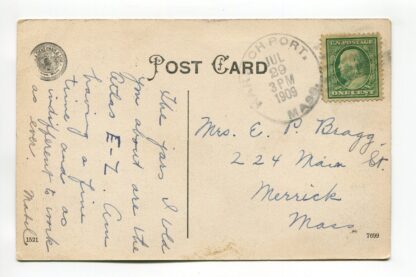 POST CARD
The jars I told
you about are the
Atlas E-Z. Am
having a fine
time and as
indifferent to work
as ever.
Mabel
1521
PORT,
JUL
29
3 PM
1909
MASS.
U.S. POSTAGE
ONE CENT
Mrs. E. P. Bragg.
224 Main St.
Merrick
Mass.
7699